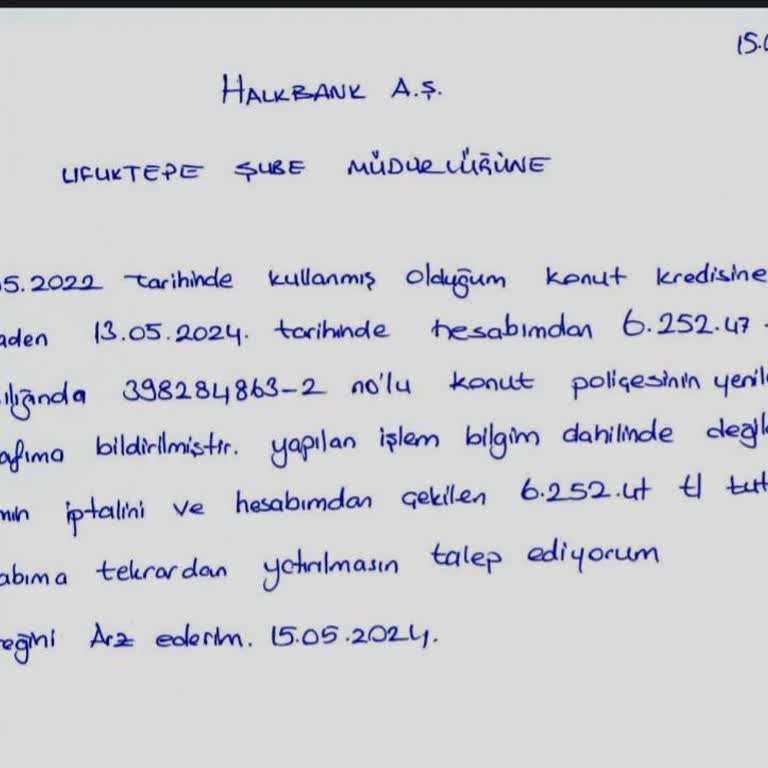 15.0
HALKBANK A.Ş.
UFUKTEPE ŞUBE MÜDÜRLÜĞÜNE
05.2022 tarihinde kullanmış olduğum konut kredisine
aden 13.05.2024. tarihinde hesabımdan 6.252.47
ılığında 398284863-2 no'lu konut poliçesinin yenil
afıma bildirilmiştir. yapılan işlem bilgim dahilinde değil
mın iptalini ve hesabımdan çekilen 6.252.47 tl tut
abıma tekrardan yatırılmasın talep ediyorum
eğini Arz ederim. 15.05.2024.